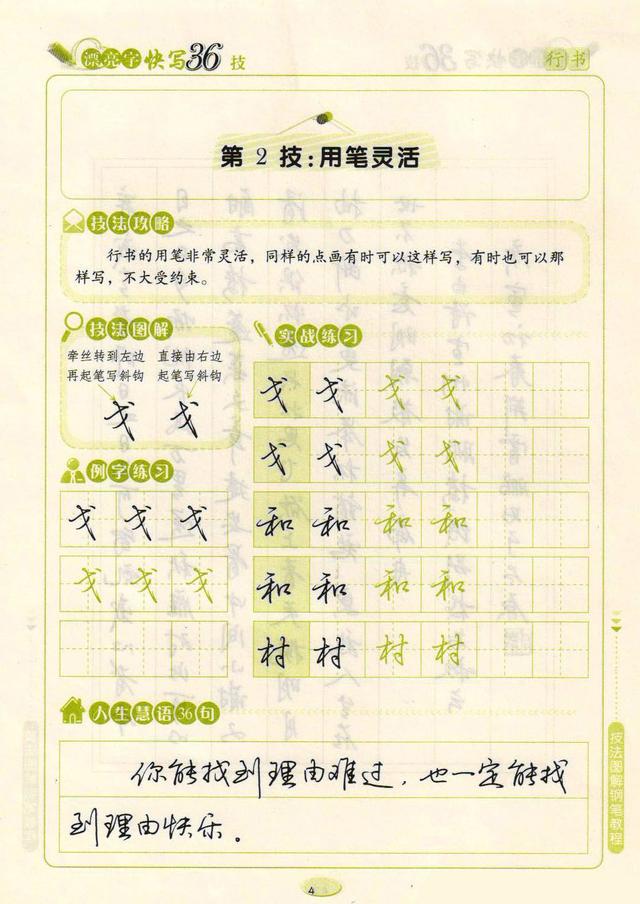 漂亮字快写36技
行书
第2技:用笔灵活
技法攻略
行书的用笔非常灵活，同样的点画有时可以这样写，有时也可以那
样写，不大受约束。
技法图解
牵丝转到左边 直接由右边
再起笔写斜钩 起笔写斜钩
戈 戈
例字练习
戈 戈 戈
戈 戈 戈
实战练习
戈 戈 戈 戈
戈 戈 戈 戈
和 和 和 和
和 和 和 和
村 村 村 村
人生慧语36句
你能找到理由难过，也一定能找
到理由快乐。
技法图解钢笔教程
4